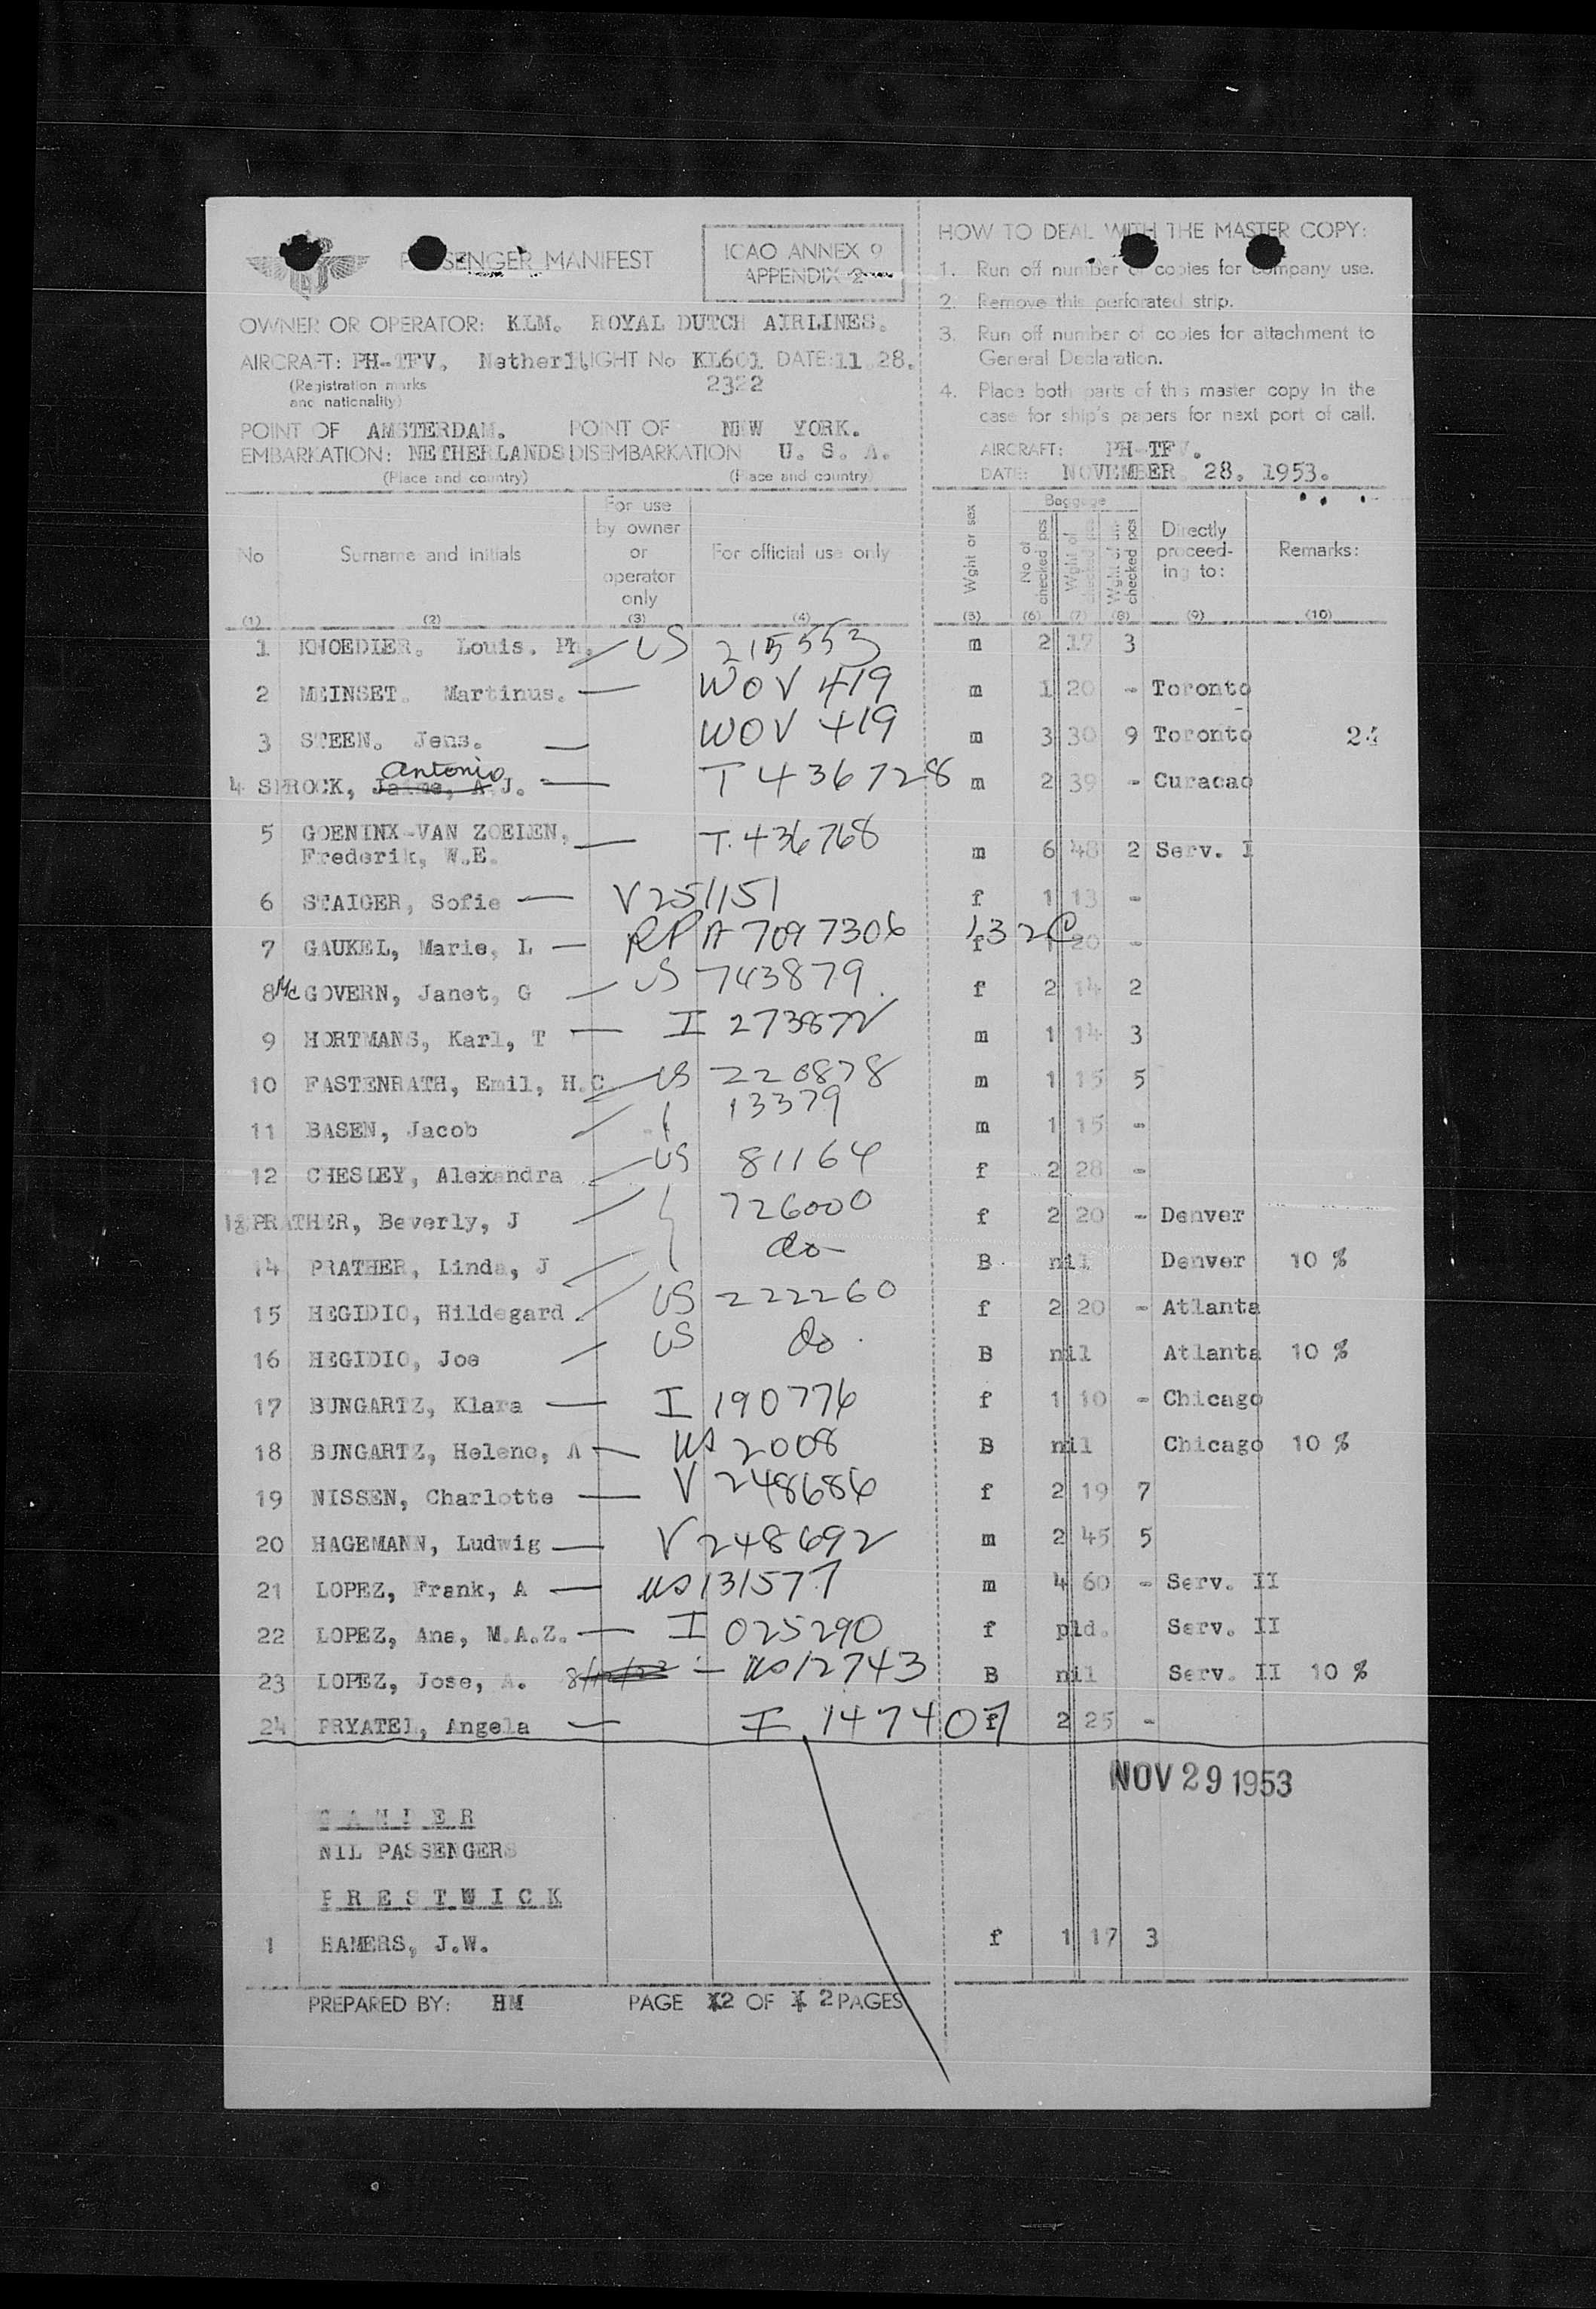 PASSENGER MANIFEST
ICAO ANNEX 9
APPENDIX 2
OWNER OR OPERATOR: KLM. ROYAL DUTCH AIRLINES.
AIRCRAFT: PH-TFV. Netherl. FLIGHT No KL601 DATE: 11.28.
(Registration marks and nationality)
2322
POINT OF EMBARKATION: AMSTERDAM. NETHERLANDS
(Place and country)
POINT OF DISEMBARKATION NEW YORK. U. S. A.
(Place and country)
HOW TO DEAL WITH THE MASTER COPY:
1. Run off number of copies for company use.
2. Remove this perforated strip.
3. Run off number of copies for attachment to
General Declaration.
4. Place both parts of this master copy in the
case for ship's papers for next port of call.
AIRCRAFT: PH-TFV.
DATE: NOVEMBER 28. 1953.
No Surname and initials For use by owner or operator only For official use only Wght or sex Baggage No of checked pcs Wght of checked pcs Directly proceed-ing to: Remarks:
(1) (2) (3) (4) (5) (6) (7) (8) (9) (10)
1 KNOEDLER. Louis. Ph. US 215553 m 2 17 3
2 MEINSET. Martinus. — WOV 419 m 1 20 - Toronto
3 STEEN. Jens. — WOV 419 m 3 30 9 Toronto 24
antonio
4 SPROCK, Jaime, A J. — T 436728 m 2 39 - Curacao
5 GOENINX-VAN ZOELEN,
Frederik, W.E. — T. 436768 m 6 48 2 Serv. I
6 STAIGER, Sofie — V 251151 f 1 13 -
7 GAUKEL, Marie, L — RP A 7097306 132C f 1 20 -
8 Mc GOVERN, Janet, G — US 743879 f 2 14 2
9 HORTMANS, Karl, T — I 273872 m 1 14 3
10 FASTENRATH, Emil, H.C. US 220878 m 1 15 5
11 BASEN, Jacob 13379 m 1 15 -
12 CHESLEY, Alexandra US 81164 f 2 28 -
13 PRATHER, Beverly, J 726000 f 2 20 - Denver
14 PRATHER, Linda, J do B nil Denver 10 %
15 HEGIDIO, Hildegard US 222260 f 2 20 - Atlanta
16 HEGIDIO, Joe US do B nil Atlanta 10 %
17 BUNGARTZ, Klara — I 190776 f 1 10 - Chicago
18 BUNGARTZ, Helene, A — US 2008 B nil Chicago 10 %
19 NISSEN, Charlotte — V 248686 f 2 19 7
20 HAGEMANN, Ludwig — V 248692 m 2 45 5
21 LOPEZ, Frank, A — US 131577 m 4 60 - Serv. II
22 LOPEZ, Ana, M.A.Z. — I 025290 f pld. Serv. II
23 LOPEZ, Jose, A. — US 12743 B nil Serv. II 10 %
24 PRYATEL, Angela — I 147407 f 2 25 -
NOV 29 1953
NIL PASSENGERS
PRESTWICK
1 HAMERS, J.W. f 1 17 3
PREPARED BY: HM PAGE 2 OF 2 PAGES